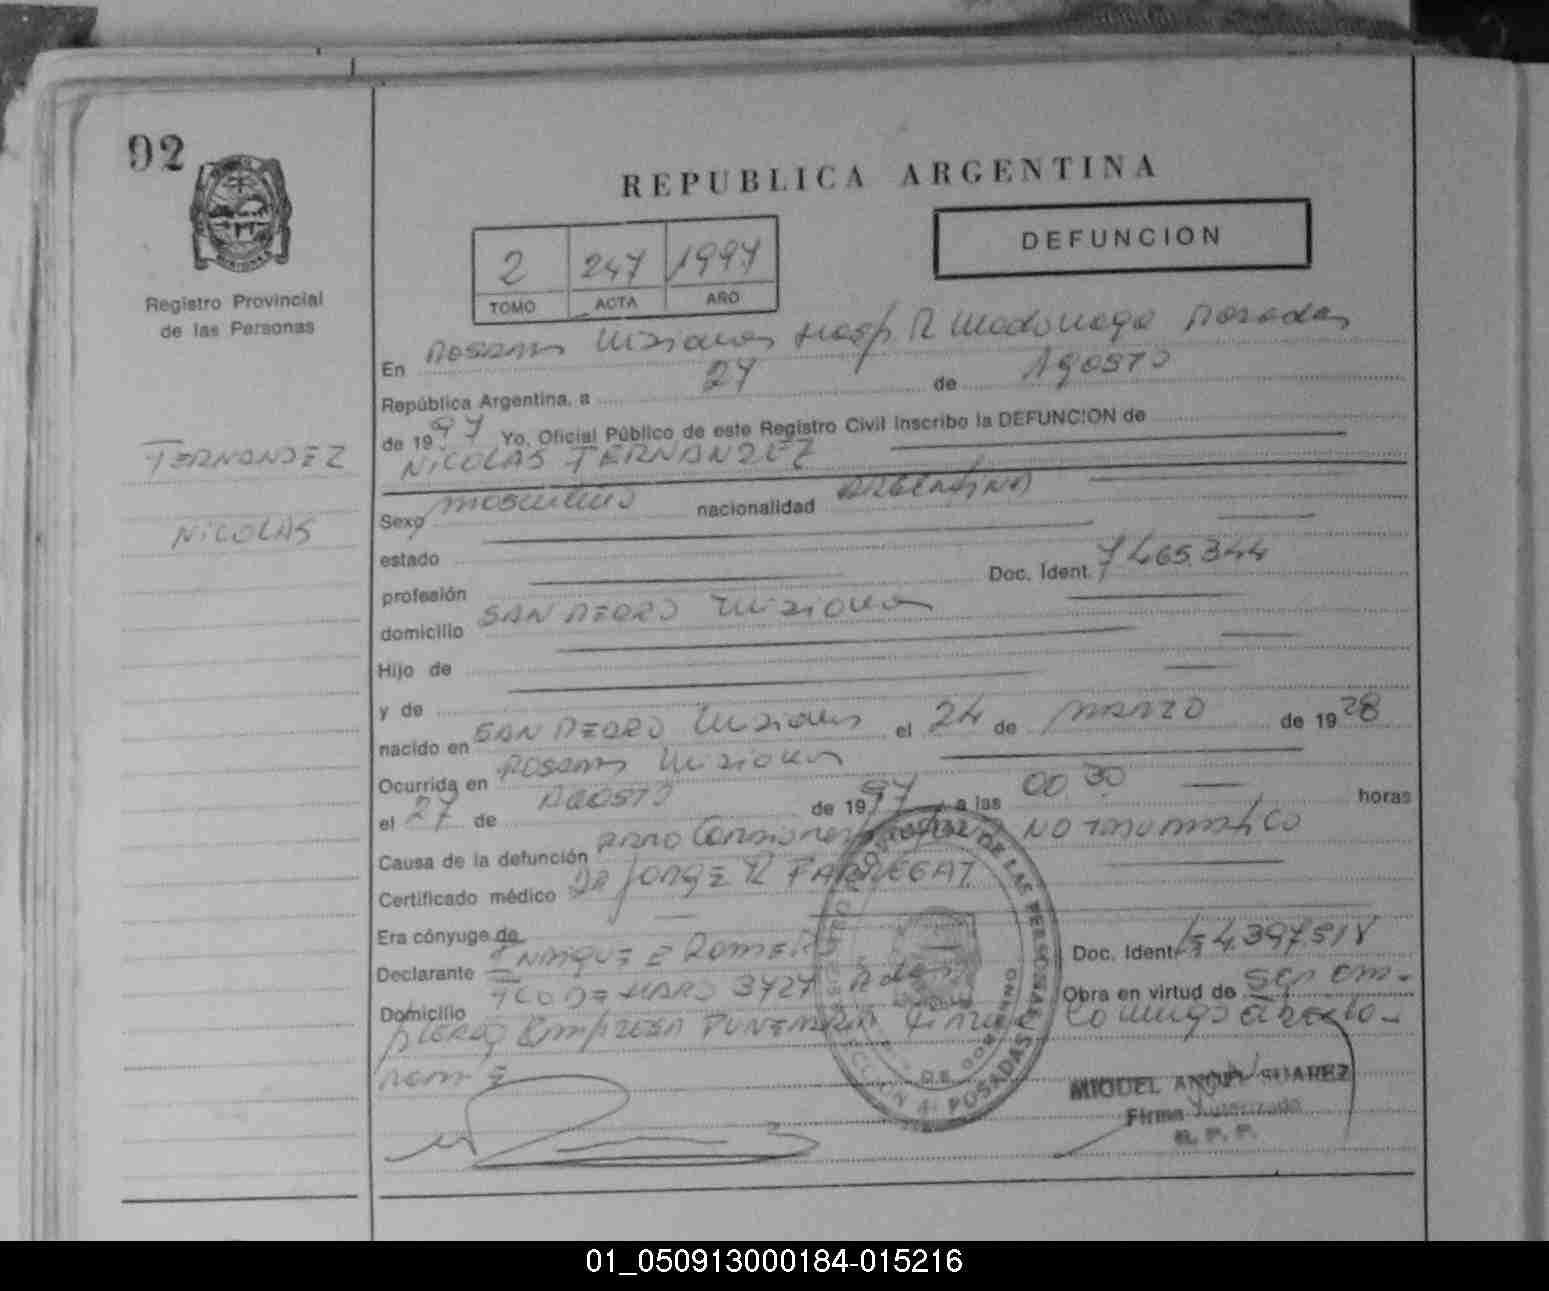 92
REPUBLICA ARGENTINA
DEFUNCION
2 247 1997
TOMO ACTA AÑO
Registro Provincial
de las Personas
En Posadas Misiones Hosp R Madariaga Posadas
República Argentina, a 27 de Agosto
de 1997 Yo, Oficial Público de este Registro Civil Inscribo la DEFUNCION de
FERNANDEZ
NICOLAS FERNANDEZ
NICOLAS
Sexo masculino nacionalidad ARGENTINA
estado
profesión Doc. Ident. 7465.344
domicilio SAN PEDRO Misiones
Hijo de
y de
nacido en SAN PEDRO Misiones el 24 de MARZO de 1928
Ocurrida en Posadas Misiones
el 27 de AGOSTO de 1997 a las 00 30 horas
Causa de la defunción PARO NO TRAUMATICO
Certificado médico DR JORGE R
Era cónyuge de
Declarante ENRIQUE ROMERO Doc. Ident.
Domicilio FCO DE HARO 3727 Obra en virtud de ser em-
pleado Empresa FUNERARIA
REGISTRO PROVINCIAL DE LAS PERSONAS
SECCION 4ª POSADAS
DE GOBIERNO
MIGUEL ANGEL SUAREZ
Firma Autorizada
R. P. P.
01_050913000184-015216